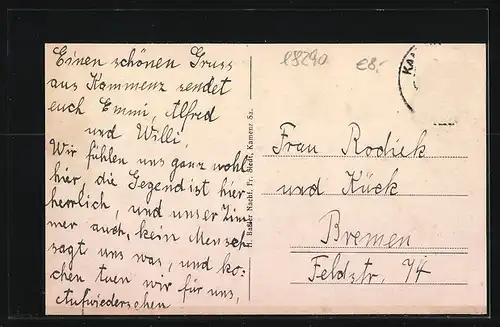 Einen schönen Gruss
aus Kammenz sendet
euch Emmi, Alfred
und Willi,
Wir fühlen uns ganz wohl
hier, die Gegend ist hier
herrlich, und unser Zim-
mer auch, kein Mensch
sagt uns was, und ko-
chen tuen wir für uns,
Aufwiedersehen
H. Basler Nachf. Fr. Riedl, Kamenz Sa.
e8-
KA
Frau Rodiek
und Kück
Bremen
Feldstr. 74